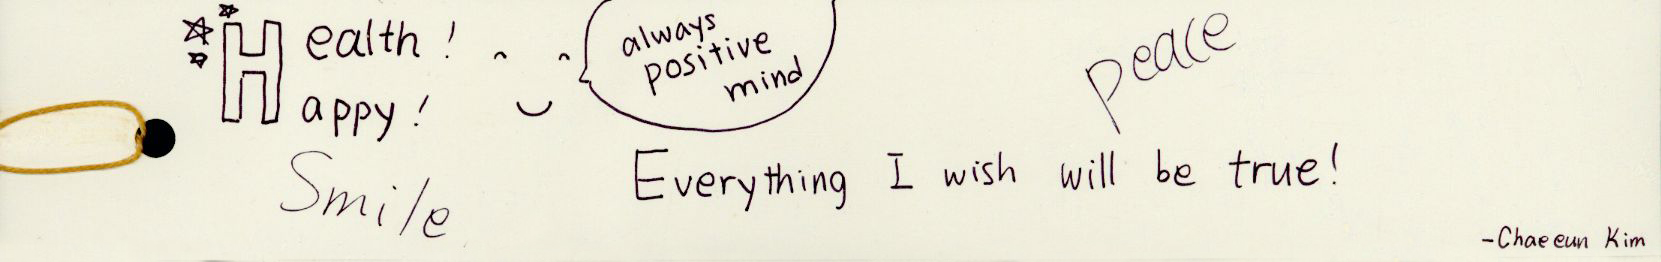 Health!
Happy!
always
positive
mind
peace
Smile
Everything I wish will be true!
-Chaeeun Kim